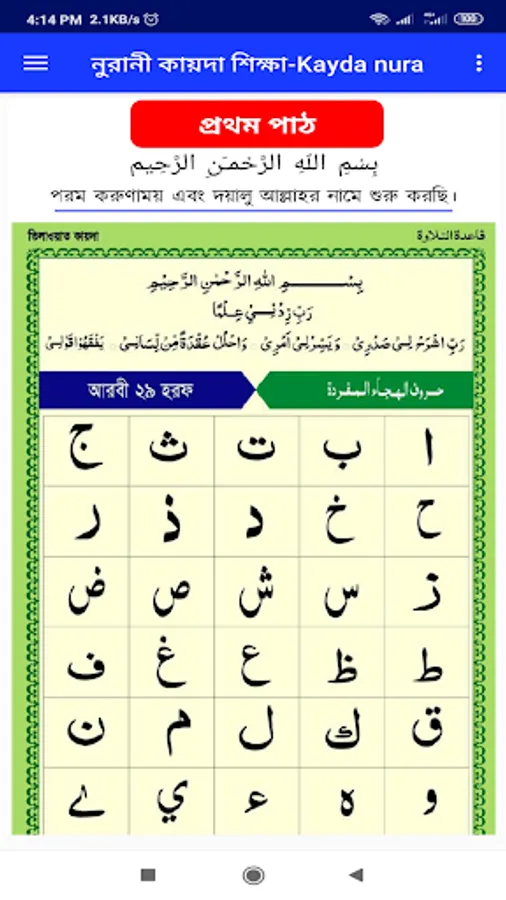 4:14 PM 2.1KB/s
নুরানী কায়দা শিক্ষা-Kayda nura
প্রথম পাঠ
بِسْمِ اللَّهِ الرَّحْمَنِ الرَّحِيمِ
পরম করুণাময় এবং দয়ালু আল্লাহর নামে শুরু করছি।
তিলাওয়াত কায়দা قاعدة التلاوة
بِسْــــمِ اللهِ الرَّحْمٰنِ الرَّحِيْمِ
رَبِّ زِدْنِيْ عِلْمًا
رَبِّ اشْرَحْ لِيْ صَدْرِيْ وَيَسِّرْلِيْ اَمْرِيْ وَاحْلُلْ عُقْدَةً مِّنْ لِّسَانِيْ يَفْقَهُوْا قَوْلِيْ
আরবী ২৯ হরফ حروف الهجاء المفردة
ا ب ت ث ج
ح خ د ذ ر
ز س ش ص ض
ط ظ ع غ ف
ق ك ل م ن
و ه ء ي ے